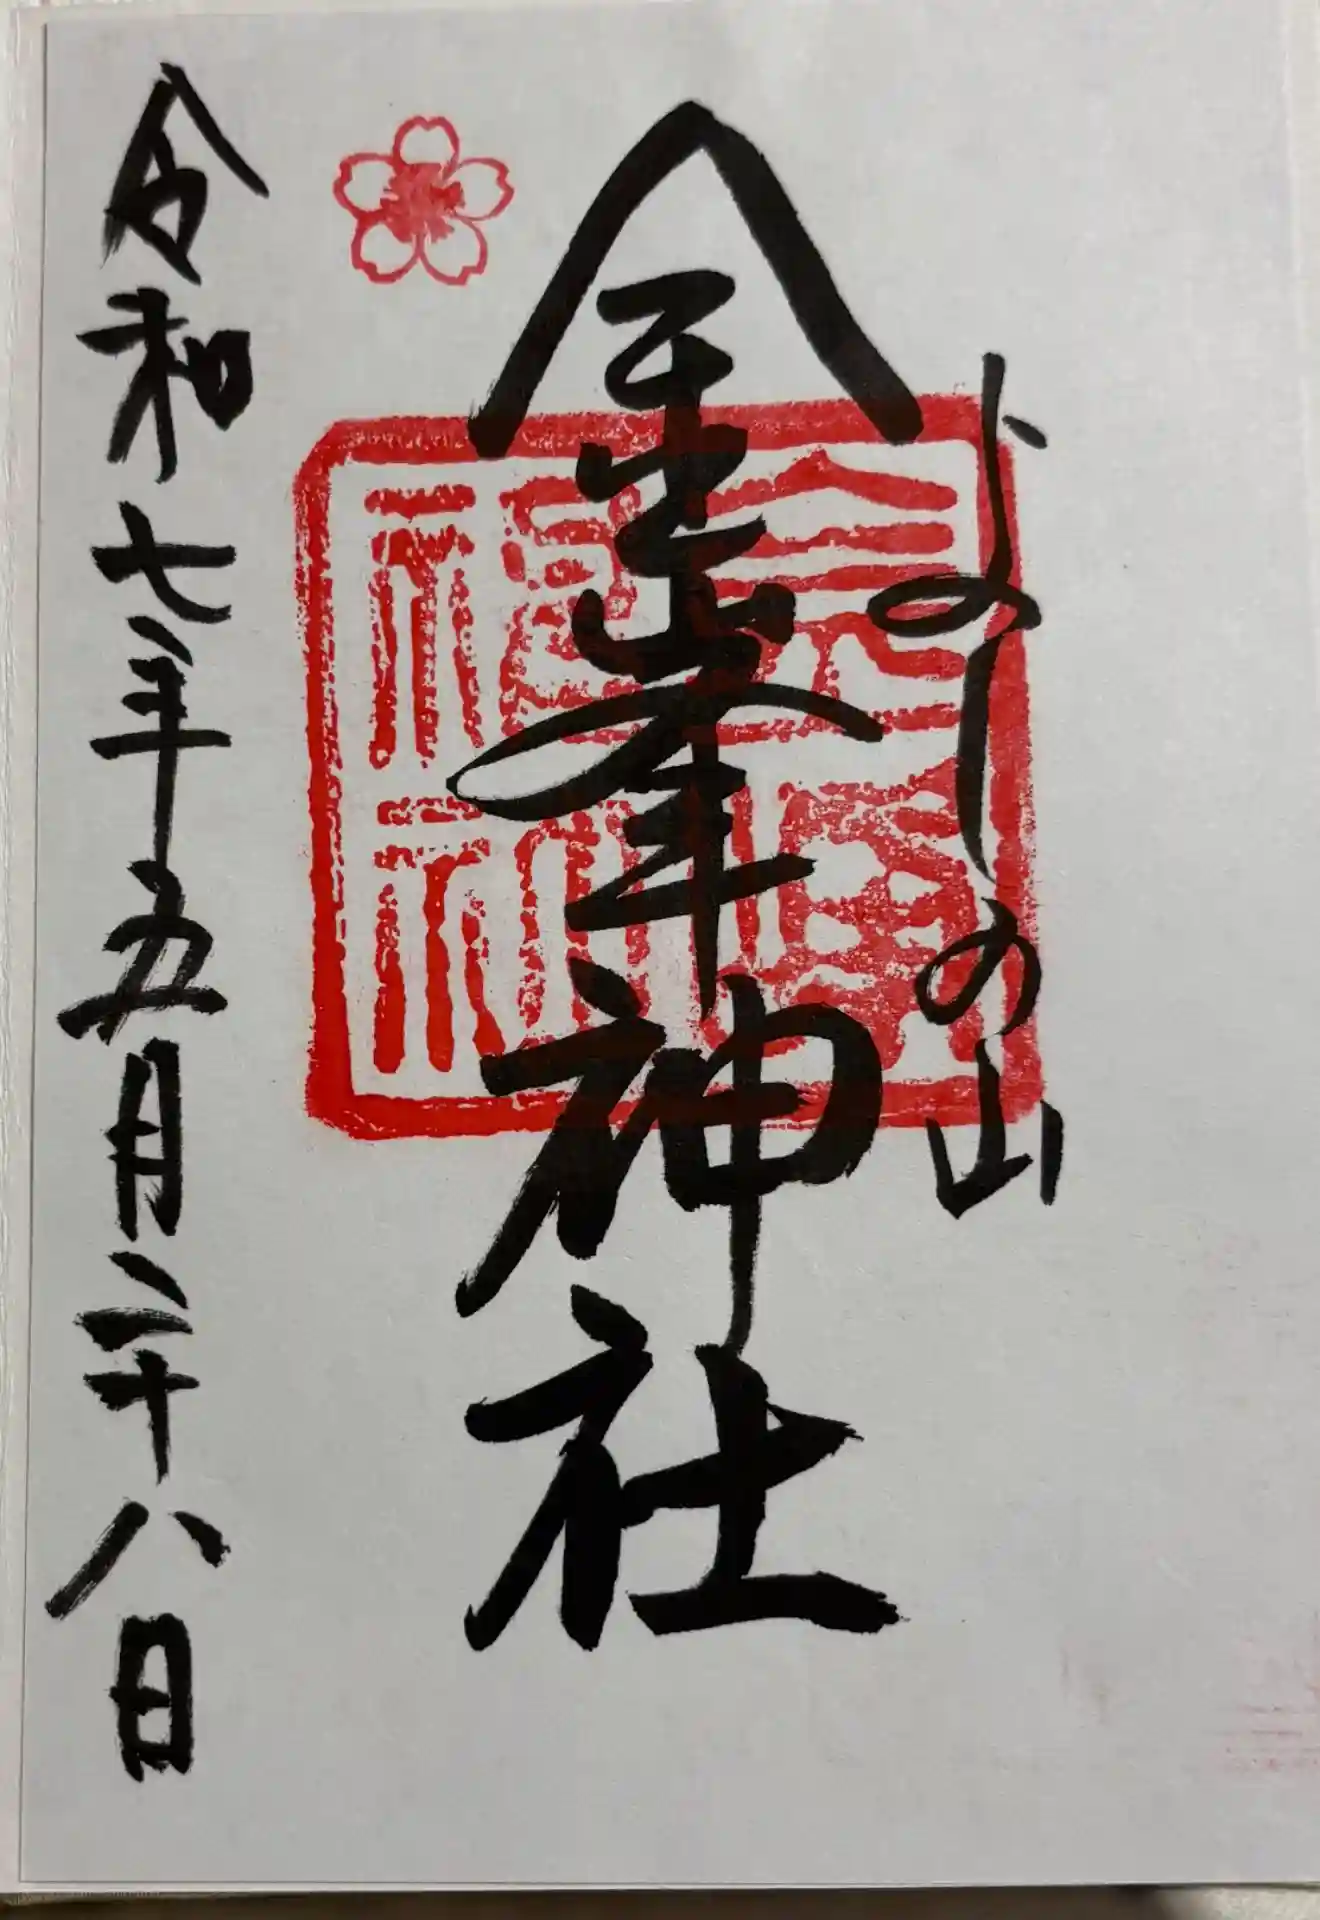 よしのの山
金峯神社
令和七年五月二十八日